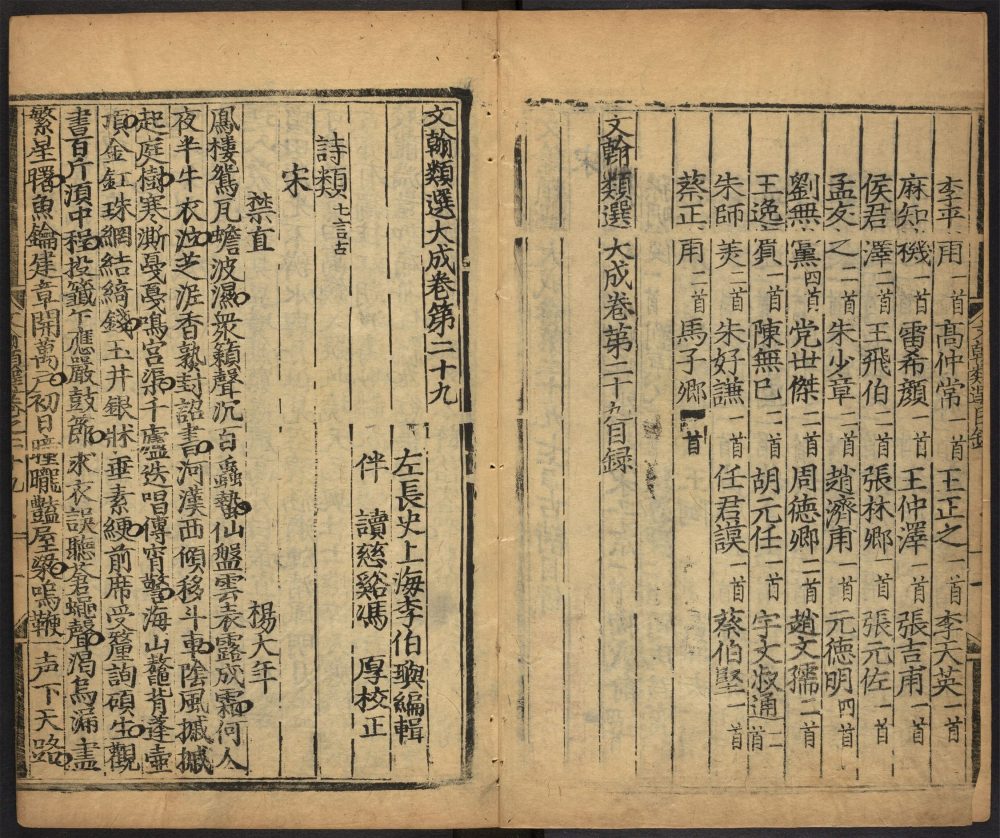 李平甫一首 高仲常一首 王正之一首 李天英一首
麻知幾一首 雷希顔一首 王仲澤一首 張吉甫一首
侯君澤二首 王飛伯一首 張林卿一首 張元佐一首
孟友之二首 朱少章二首 趙濟甫一首 元德明四首
劉無黨四首 党世傑二首 周德卿二首 趙文孺二首
王逸賓一首 陳無已二首 胡元任一首 宇文叔通二首
朱師美二首 朱好謙一首 任君謨一首 蔡伯堅一首
蔡正甫二首 馬子卿一首
文翰類選大成卷第二十九目録
文翰類選目錄
文翰類選大成卷第二十九
左長史上海李伯璵編輯
伴讀慈谿馮厚校正
詩類七言古
宋
禁直 楊大年
鳳樓鴛瓦蟾波濕衆籟聲沉百蟲蟄仙盤雲表露成霜何人
夜半牛衣泣芝泥香熟封詔書河漢西傾移斗車陰風撼撼
起庭樹寒澌戞戞鳴宮渠千廬迭唱傳宵警海山鼇背蓬壺
頂金釭珠網結綺錢玉井銀牀垂素綆前席受釐詢碩生觀
書百斤湏中程投籤下應嚴鼓節求衣誤聽蒼蠅聲渴烏漏盡
繁星曙魚鑰建章開萬戸初日曈曨豔屋梁鳴鞭一声下天路